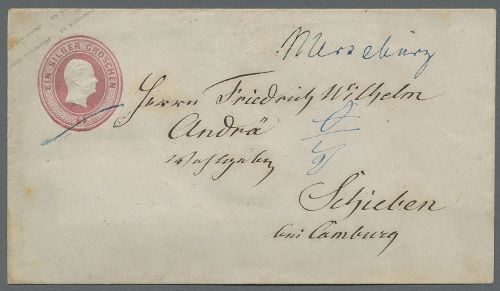 EIN SILBER GROSCHEN
Merseburg
Herrn Friedrich Wilhelm
Andrä
Schieben
bei Camburg